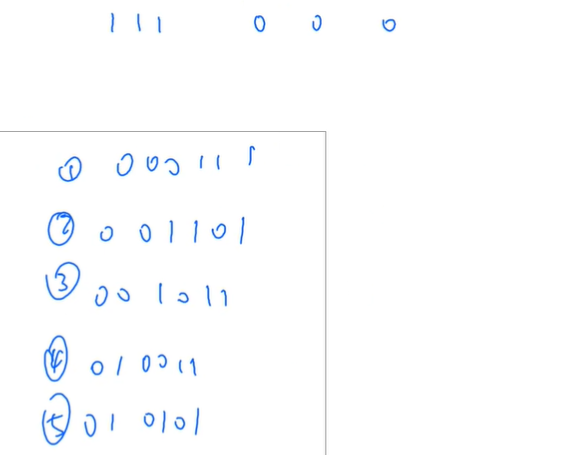 111 0 0 0
① 000111
② 001101
③ 001011
④ 010011
⑤ 010101